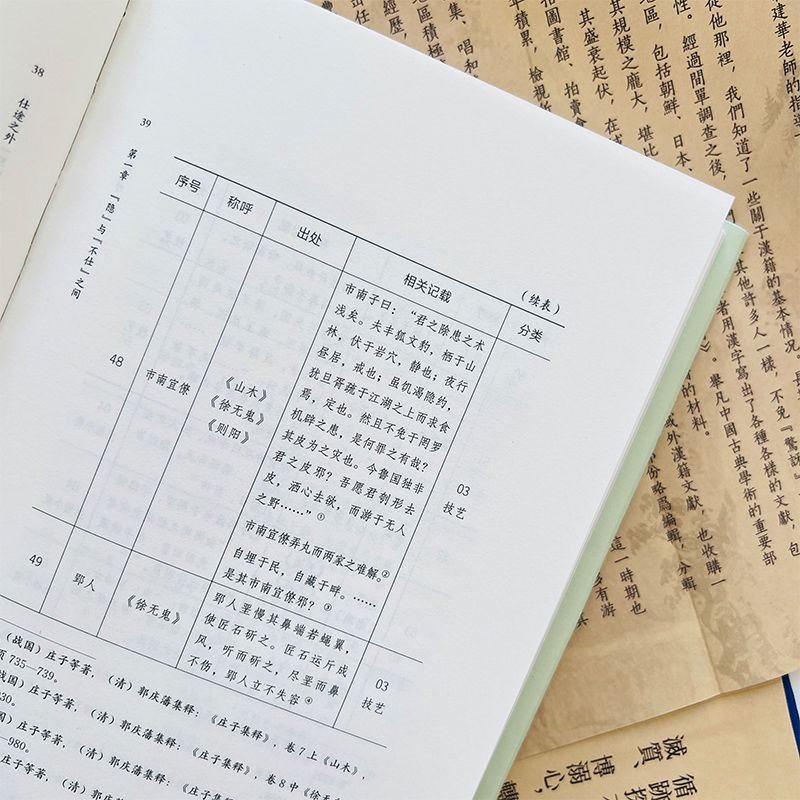 38
仕途之外
39
第一章 “隐”与“不仕”之间
(续表)
序号
称呼
出处
相关记载
分类
48
市南宜僚
《山木》
《徐无鬼》
《则阳》
市南子曰：“君之除患之术
浅矣。夫丰狐文豹，栖于山
林，伏于岩穴，静也；夜行
昼居，戒也；虽饥渴隐约，
犹旦胥疏于江湖之上而求食
焉，定也。然且不免于罔罗
机辟之患，是何罪之有哉？
其皮为之灾也。今鲁国独非
君之皮邪？吾愿君刳形去
皮，洒心去欲，而游于无人
之野……”①
市南宜僚弄丸而两家之难解。②
自埋于民，自藏于畔。……
是其市南宜僚邪？③
03
技艺
49
郢人
《徐无鬼》
郢人垩慢其鼻端若蝇翼，
使匠石斫之。匠石运斤成
风，听而斫之，尽垩而鼻
不伤，郢人立不失容④
03
技艺
(战国)庄子等著，(清)郭庆藩集释：《庄子集释》，卷7上《山木》，
页735—739。
国)庄子等著，(清)郭庆藩集释：《庄子集释》，卷8中《徐无
30。
庄子等著，(清)郭庆藩集释：《庄子
—980。
子等著，(清)郭庆
建華老師的指導
從他那裡，我們知道了一些關于漢籍的基本情況
性。經過間單調查之後，
其他許多人一樣，不免『驚訝』
地區，包括朝鮮、日本、
者用漢字寫出了各種各樣的文獻，包
其規模之龐大，堪比
》。舉凡中國古典學術的重要部
其盛衰起伏，在
的材料。
拍圖書館、拍賣會
域外漢籍文獻，也收購一
年積累，檢視
份略爲編輯，分輯
集、唱和
這一時期也
區積極
多有游
經歷，
出任
循跡
滅質、博溺心，